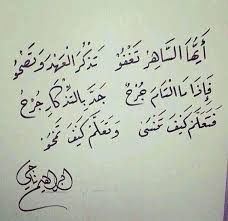 أيها الساهر تغفو   تذكر العهد وتصحو
فإذا ما التام جرح   جد بالتذكار جرح
فتعلم كيف تنسى   وتعلم كيف تمحو
إبراهيم ناجي